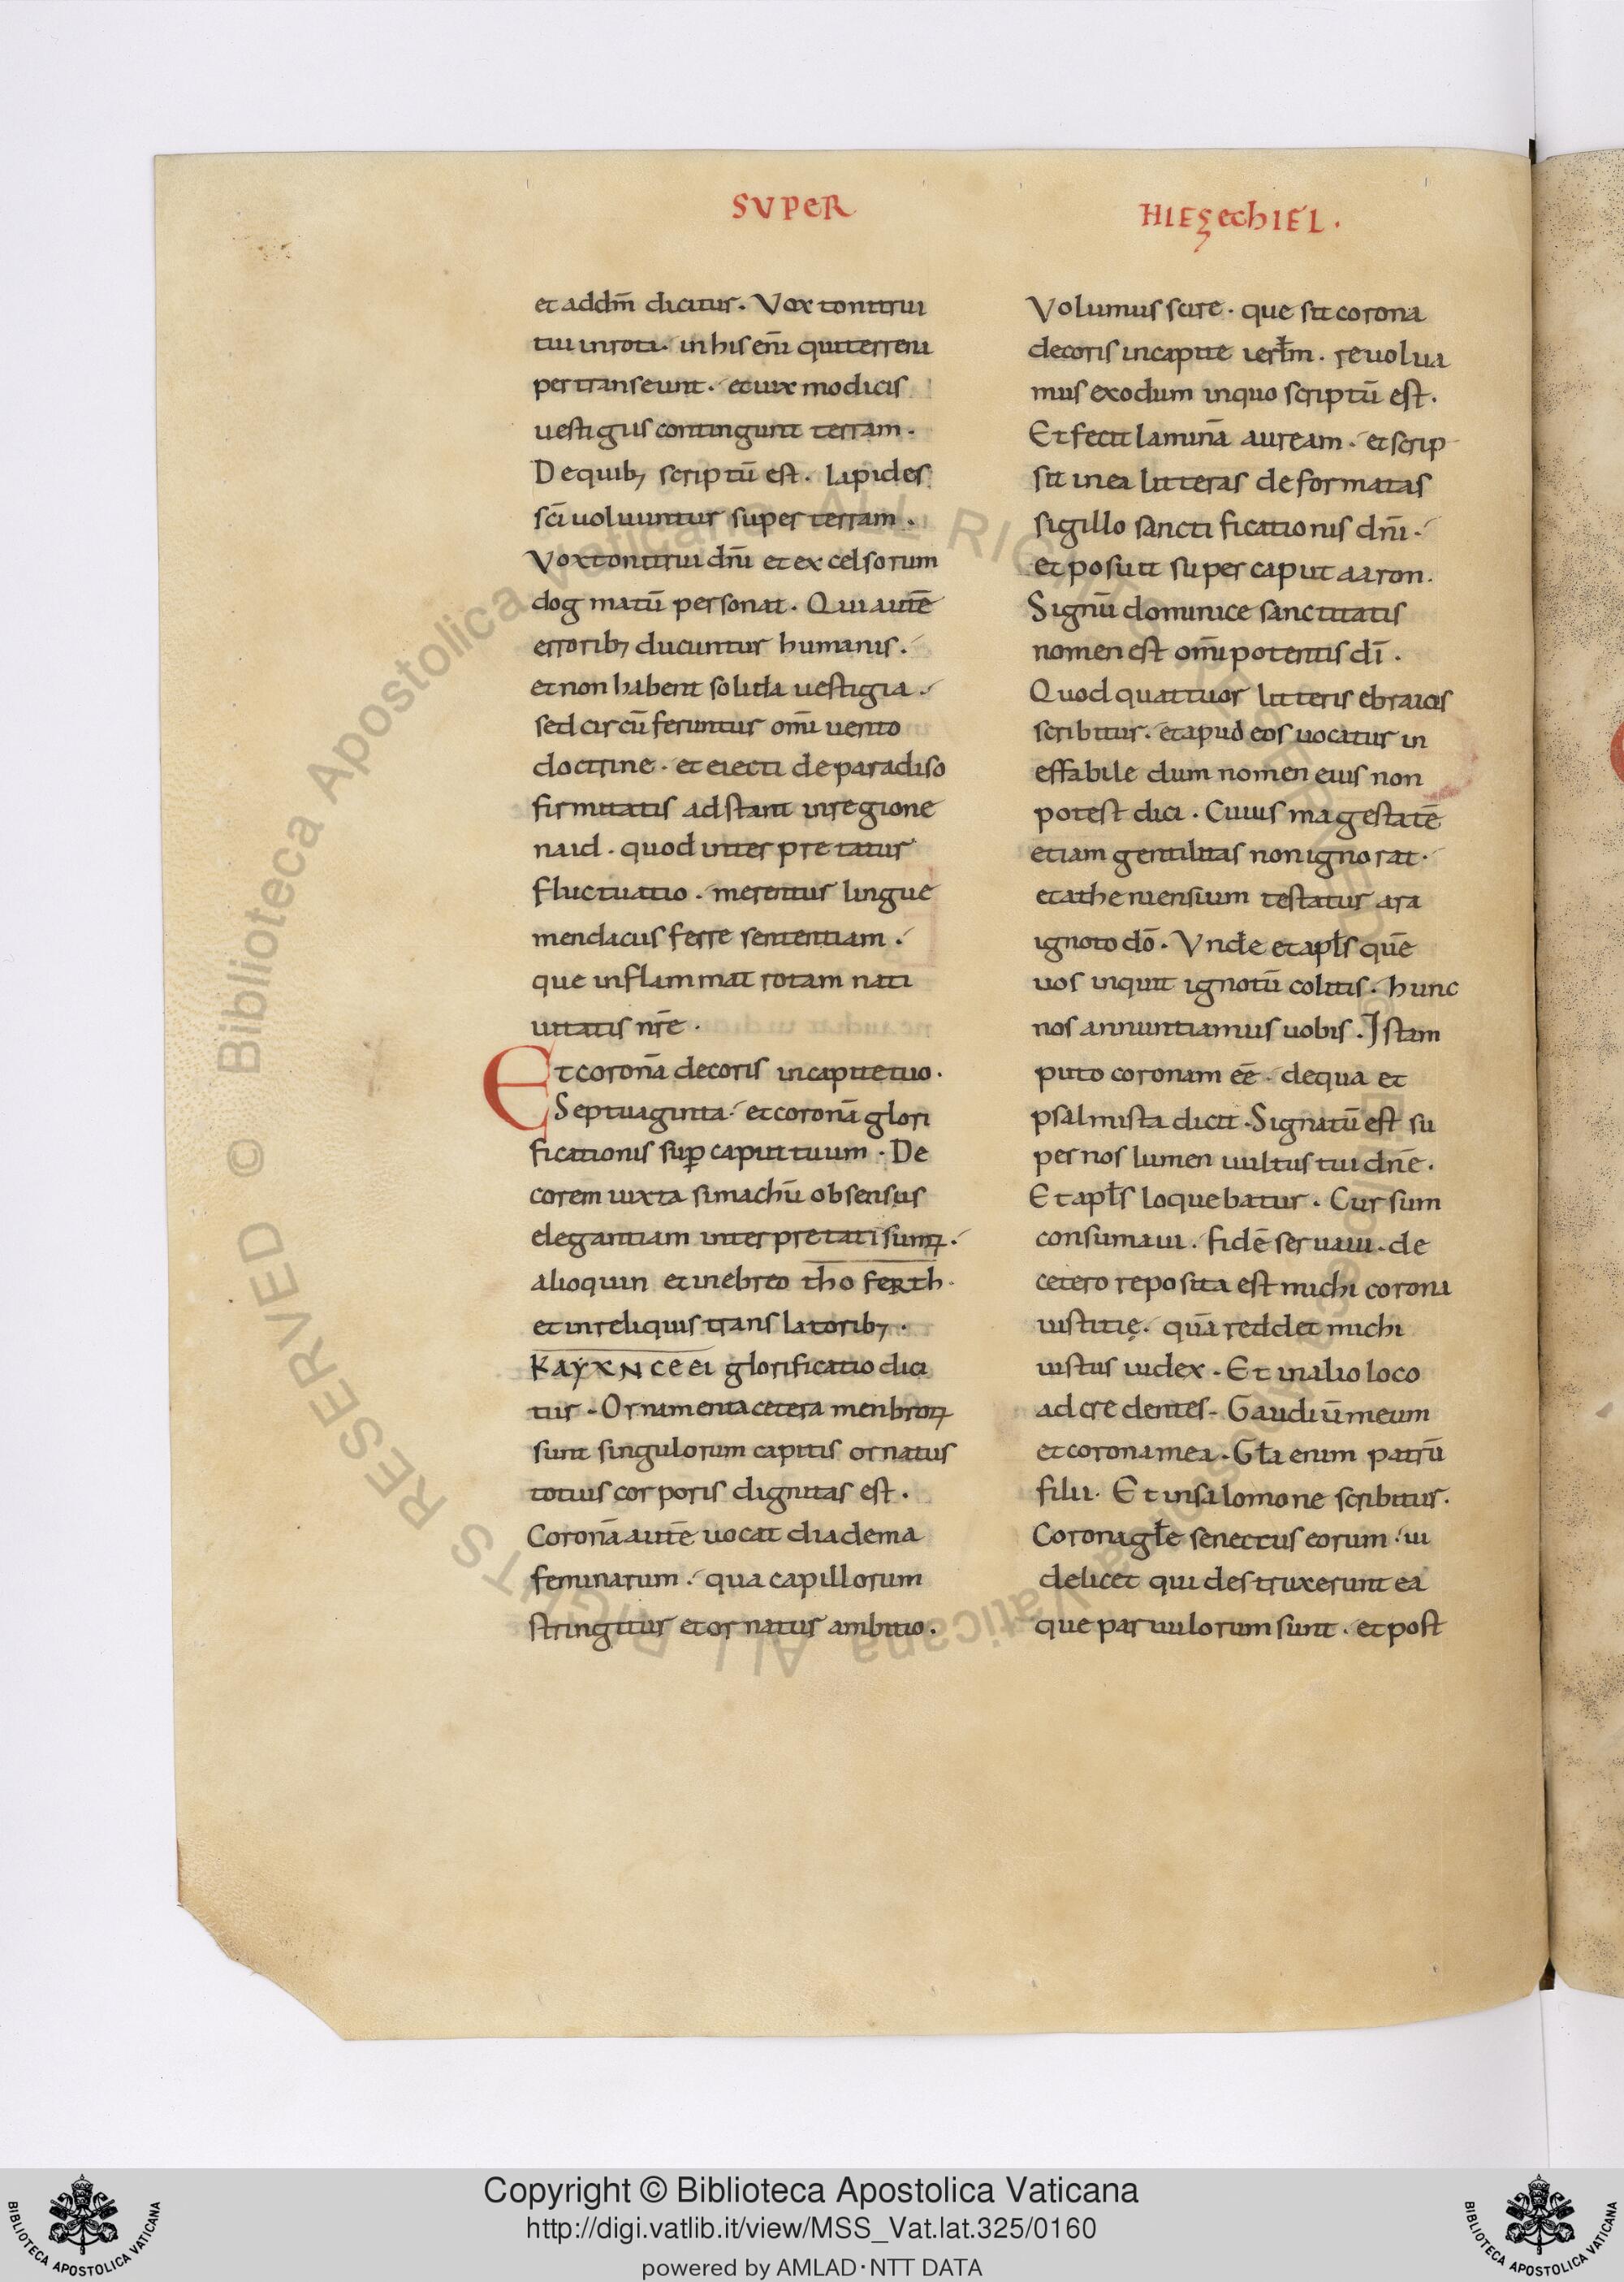 SVPER
HIEZechIEL.
et addm̄ dicitur. Vox tonitrui
tui in rota. in his enī qui terrena
pertranseunt. et uix modicis
uestigiis contingunt terram.
De quib; scriptū est. Lapides
sc̄i uoluuntur super terram.
Vox tonitrui dn̄i et excelsorum
dogmatū personat. Qui autē
errorib; ducuntur humanis.
et non habent solida uestigia.
sed circū feruntur om̄i uento
doctrine. et eiecti de paradiso
firmitatis adstant in regione
naid. quod interpretatur
fluctuatio. merentur lingue
mendacius ferre sententiam.
que inflammat rotam nati
uitatis nr̄e.
Et coronā decoris in capite tuo.
Septuaginta. et coronā glori
ficationis sup caput tuum. De
corem iuxta simachū ob sensus
elegantiam interpretati sumꝰ.
alioquin et in ebreo tho ferth.
et in reliquis translatorib;.
KAYXNCEEI glorificatio dici
tur. Ornamenta cetera menbroꝝ
sunt singulorum capitis ornatus
totius corporis dignitas est.
Coronā autē uocat diadema
feminarum. qua capillorum
stringitur et ornatur ambitio.
Volumus scire. que sit corona
decoris in capite ierłm. reuolua
mus exodum in quo scriptū est.
Et fecit laminā auream. et scrip
sit in ea litteras deformatas
sigillo sanctificationis dn̄i.
et posuit super caput aaron.
Signū dominice sanctitatis
nomen est om̄ipotentis dī.
Quod quattuor litteris ebraicis
scribitur. et apud eos uocatur in
effabile dum nomen eius non
potest dici. Cuius magestatē
etiam gentilitas non ignorat.
et atheniensium testatur ara
ignoto dō. Vnde et apłs quē
uos inquit ignotū colitis. hunc
nos annuntiamus uobis. Istam
puto coronam eē. de qua et
psalmista dicit. Signatū est su
per nos lumen uultus tui dn̄e.
Et apłs loquebatur. Cursum
consumaui. fidē seruaui. de
cetero reposita est michi corona
iustitię. quā reddet michi
iustus iudex. Et in alio loco
ad credentes. Gaudiū meum
et corona mea. Gła enim patrū
filii. Et in salomone scribitur.
Corona głe senectus eorum. ui
delicet qui destruxerunt ea
que paruulorum sunt. et post
© Biblioteca Apostolica Vaticana ALL RIGHTS RESERVED
Copyright © Biblioteca Apostolica Vaticana
http://digi.vatlib.it/view/MSS_Vat.lat.325/0160
powered by AMLAD·NTT DATA
BIBLIOTECA APOSTOLICA VATICANA
BIBLIOTECA APOSTOLICA VATICANA